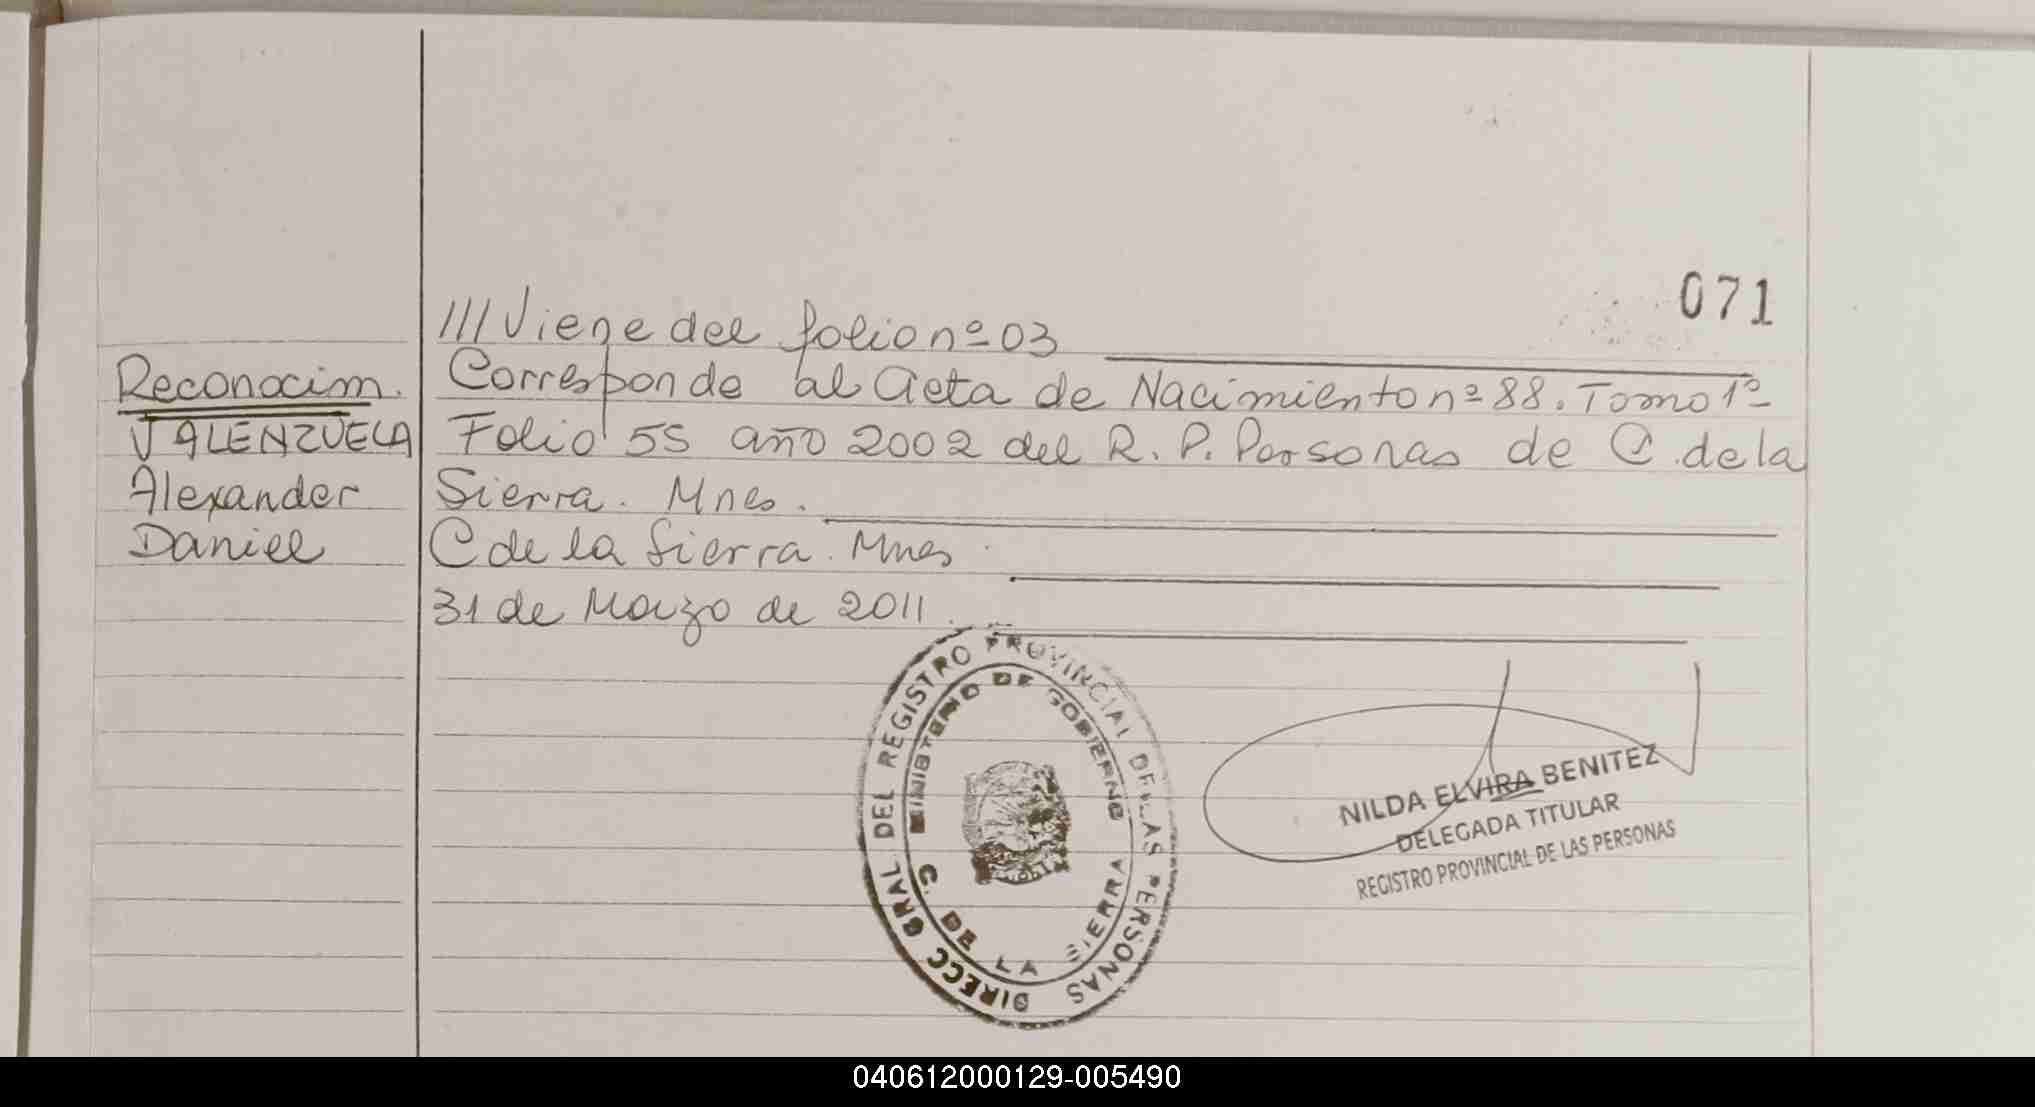 071
///Viene del folio nº 03
Reconocim.
VALENZUELA
Alexander
Daniel
Corresponde al acta de Nacimiento nº 88. Tomo 1º
Folio 55 año 2002 del R. P. Personas de C. de la
Sierra. Mnes.
C de la Sierra. Mnes.
31 de Marzo de 2011.
DIRECC GRAL DEL REGISTRO PROVINCIAL DE LAS PERSONAS
MINISTERIO DE GOBIERNO
C. DE LA SIERRA
NILDA ELVIRA BENITEZ
DELEGADA TITULAR
REGISTRO PROVINCIAL DE LAS PERSONAS
040612000129-005490